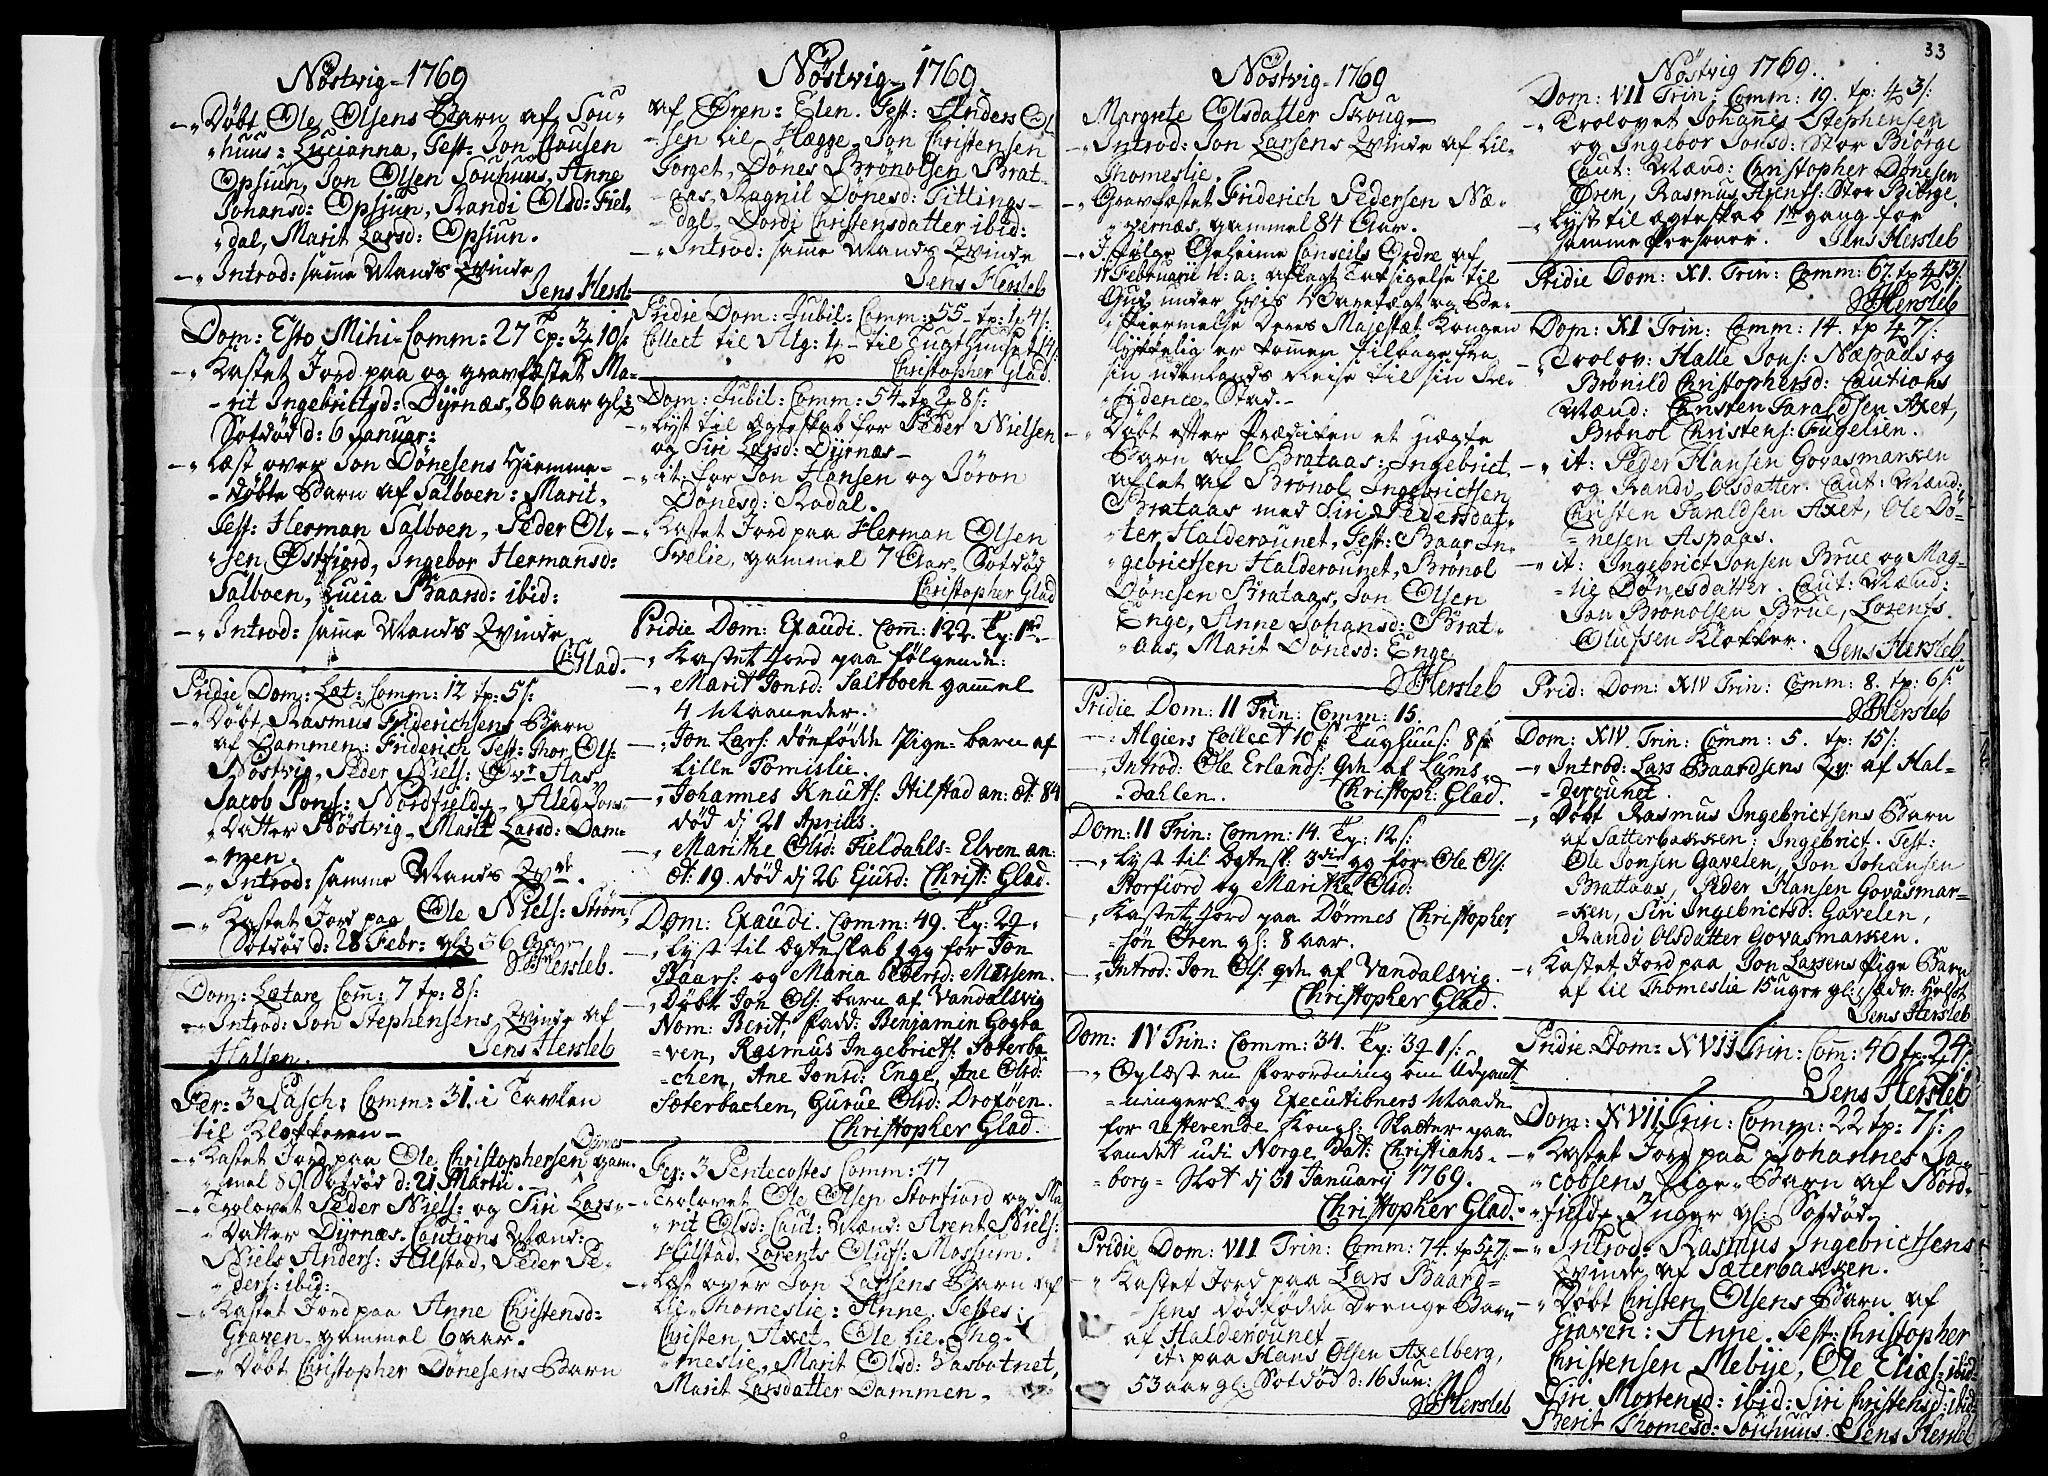 Nöstvig-1769
Döbt Ole Olsens Barn af Sou-
huus: Lucianna, Test: Jon Clausen
Opsiun, Jon Olsen Souhuus, Anne
Johansd: Opsiun, Randi Olsd: Fiel-
dal, Marit Larsd: Opsiun.
Introd: samme Mands Qvinde
Jens Hersl:
Dom: Esto Mihi- Comm: 27 Tp: 3 10 s:
Kastet Jord paa og gravfæstet Ma-
rit Ingebrictsd: Dÿrnæs, 86 aar gl:
Sotdöd d: 6 Januar:
Læst over Jon Dönesens Hiemme-
döbte Barn af Salboen: Marit,
Test: Herman Salboen, Peder Ol-
sen Østfiord, Ingebor Hermansd:
Salboen, Lucia Baarsd: ibid:
Introd: samme Mands Qvinde
C: Glad.
Pridie Dom: Læt: Comm: 12 tp: 5 s:
Döbt Rasmus Friderichsens Barn
af Dammen: Friderich Test: Thor Ols:
Nöstvig, Peder Niels: Øvr Aas
Jacob Jons: Nordfield, Aled Jons
Datter Nöstvig, Marit Larsd: Dam-
men.
Introd: samme Mands Qvde.
Kastet Jord paa Ole Niels: Ström,
Sotdöd d: 28 Febr: gl: 36 Aar
J Hersleb.
Dom: Lætare Com: 7 tp: 8 s:
Introd: Jon Stephensens Qvinde af
Halsen. Jens Hersleb
Fer: 3 Pasch: Comm: 31. i Tavlen
til Klokkeren-
Kastet Jord paa Ole Christophersen Dÿrnes gam-
mel 89 Sotdöd d: 21 Martii.
Trolovet Peder Niels: og Siri Lars-
Datter Dÿrnæs. Cautions Mænd:
Niels Anders: Hilstad, Peder Pe-
ders: ibid:
Kastet Jord paa Anne Christensd:
Graven gammel 6 aar.
Döbt Christopher Dönesens Barn
Nöstvig- 1769
af Ören: Elen. Test: Anders Ol-
sen lil Hægge, Jon Christensen
Torget, Dönes Brönolsen Brat-
aas, Ragnil Dönesd: Tittings-
dal, Dordi Christensdatter ibid:
Introd: samme Mands Qvinde
Jens Hersleb
Pridie Dom: Jubil: Comm: 55- tp: 1 4 s:
Collect til Alg: 4- til Tugthuuset 14 s:
Christopher Glad.
Dom: Jubil: Comm: 54- tp 2 8 s:
Lyst til Ægteskab for Peder Nielsen
og Siri Larsd: Dÿrnæs-
it: for Jon Hansen og Jöron
Dönesd: Rodal.
Kastet Jord paa Herman Olsen
Svelie, gammel 7 Aar, Sotdöd
Christopher Glad
Pridie Dom: Exaudi. Com: 122. Tp: 1
Kastet Jord paa fölgende:
Marit Jonsd: Saltboen gammel
4 Maaneder.
Jon Lars: dödfödde Pige-barn af
Lille Tomislie.
Johannes Knuts: Hilstad an: æt: 84
död dj 21 Aprilis.
Marithe Olsd: Fieldahls-Elven an:
æt: 19. död dj 26 Ejusd: Christ: Glad.
Dom: Exaudi. Comm: 49. Tp: 29
Lyst til Ægteskab 1 gg for Jon
Baars: og Maria Pedersd: Mersem.
Döbt Jon Ols: barn af Vandalsvig
Nom: Berit, fadd: Benjamin Gogha
ven, Rasmus Ingebricts: Sæterba-
chen, Ane Jonsd: Enge, Ane Olsd:
Sæterbachen, Gurue Olsd: Droföen.
Christopher Glad.
Fer: 3 Pentecostes Comm: 47
Trolovet Ole Olsen Storfiord og Ma
rit Olsd: Caut: Mænd: Arent Niels:
Hilstad, Lorents Olufs: Mossum.
Læst over Jon Larsens Barn af
Lil Thomeslie: Anne. Testes:
Christen Axet, Ole Lil-Tho-
meslie, Marit Olsd: Vasbotnet,
Marit Larsdatter Dammen-
Nöstvig-1769
Margrete Olsdatter Skoug-
Introd: Jon Larsens Qvinde af Lil-
Thomeslie.
Gravfæstet Friderich Pedersen Næ-
vernæs, gammel 84 Aar.
I fölge Geheime Conseils Ordre af
17 Februarii h: a: aflagt Taksigelse til
Gud under hvis Varetægt og Be-
skiermelse Deres Majestæt Kongen
lykkelig er kommen tilbage fra
sin udenlands Reise til sin Re-
sidence Stad.-
Döbt efter Prædiken et uægte
Barn af Brataas: Ingebrict,
aflet af Brönol Ingebrictsen
Brataas med Siri Pedersdat-
ter Halderounet, Test: Baar In-
gebrictsen Halderounet, Brönol
Dönesen Brataas, Jon Olsen
Enge, Anne Johansd: Brat-
aas, Marit Jonsd: Enge
J Hersleb
Pridie Dom: II Trin: Comm: 15.
Algiers Collect 10 s: Tughuus: 8 s:
Introd: Ole Erlands: qvde af Lums
dahlen. Christoph: Glad.
Dom: II Trin: Comm: 14. Tp: 12 s:
Lyst til Ægtesk: 3die gg for Ole Ols:
Storfiord og Marithe Olsd:
Kastet Jord paa Dönnes Christopher
sön Ören gl: 8 aar.
Introd: Jon Ols: qvde af Vandalsvig.
Christopher Glad.
Dom: IV Trin: Comm: 34. Tp: 39 1 s:
Oplæst en Forordning om Udpant-
ningers og Executioners Maade
for resterende Kongl: Skatter paa
Landet udi Norge, dat: Christians-
borg-Slot dj 31 Januarij 1769.
Christopher Glad.
Pridie Dom: VII Trin: Comm: 74. tp 5 7 s:
Kastet Jord paa Lars Baard-
sens dödfödde Drenge Barn
af Halderounet
it: paa Hans Olsen Axelberg,
53 aar gl: Sotdöd d: 16 Jun:
J Hersleb
33
Nöstvig 1769.
Dom: VII Trin: Comm: 19. tp: 4 3 s:
Trolovet Johanes Stephensen
og Ingebor Jonsd: Stor Biörge
Caut: Mænd: Christopher Dönesen
Ören, Rasmus Arents: Stor Biörge.
Lyst til ægteskab 1te gang for
samme Personer. Jens Hersleb
Pridie Dom: XI. Trin: Comm: 67. tp 4 13 s:
J Hersleb
Dom: XI Trin: Comm: 14. tp 4 7 s:
Trolov: Halle Jons: Næsaas og
Brönild Christophersd: Cautions
Mænd: Christen Taraldsen Axet,
Brönol Christens: Fugelien.
it: Peder Hansen Govasmarken
og Randi Olsdatter. Caut: Mænd:
Christen Taraldsen Axet, Ole Dö-
nesen Aspaas.
it: Ingebrict Jonsen Brue og Mag-
lie Dönesdatter. Caut: Mænd:
Jon Brönolsen Brue, Lorents
Olufsen Klokker. Jens Hersleb
Prid: Dom: XIV Trin: Comm: 8. tp: 6 s:
J Hersleb
Dom: XIV. Trin: Comm: 5. tp: 15 s:
Introd: Lars Baardsens Qv: af Hal-
derounet.
Döbt Rasmus Ingebrictsens Barn
af Sætterbakken: Ingebrict. Test:
Ole Jonsen Gavelen, Jon Johansen
Brattaas, Peder Hansen Govasmar-
ken, Siri Ingebrictsd: Gavelen,
Randi Olsdatter Govasmarken.
Kastet Jord paa Jon Larsens Pige Barn
af lil Thomeslie 15 uger gl:
Jens Hersleb
Pridie Dom: XVII Trin: Com: 46 tp: 2 4 s:
Jens Hersleb
Dom: XVII Trin: Comm: 22 tp: 7 s:
Kastet Jord paa Johannes Ja-
cobsens Pige-Barn af Nord-
field. Inger gl: Sotdöd.
Introd: Rasmus Ingebrictsens
Qvinde af Sæterbakken.
Döbt Christen Olsens Barn af
Graven: Anne. Test: Christopher
Christensen Mebÿe, Ole Elias: ibid:
Siri Mortensd: ibid: Siri Christensd: ibid:
Berit Thomesd: Souhuus. Jens Hersleb